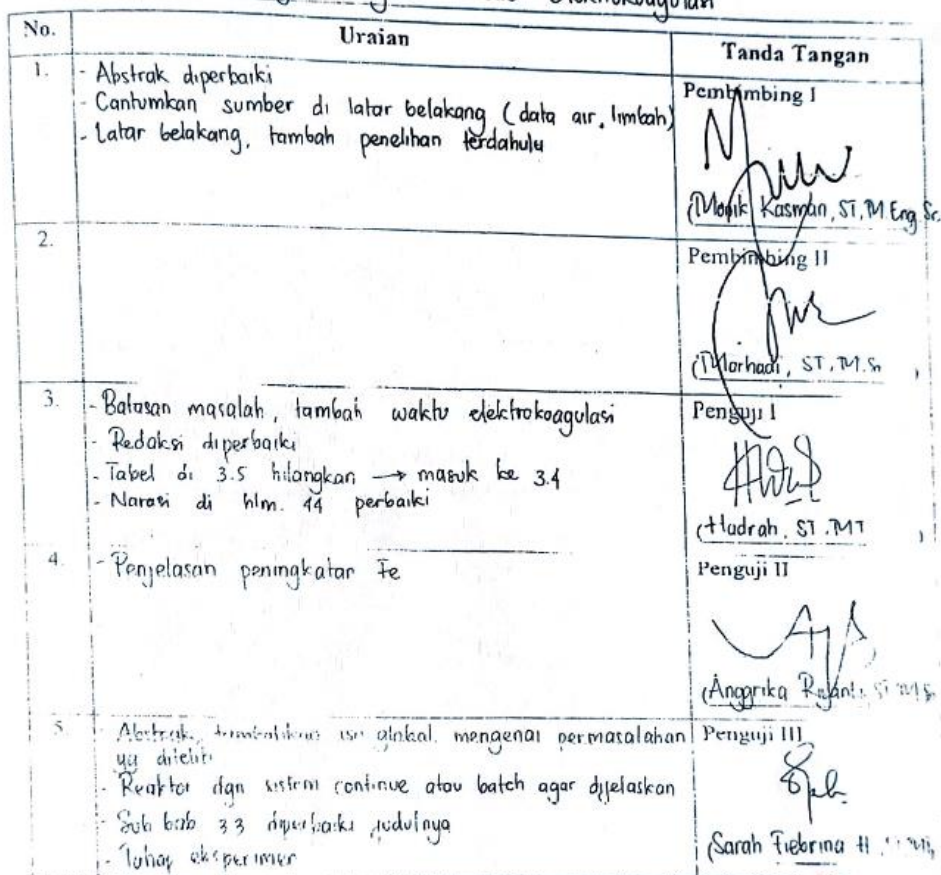 Elektrokoagulasi
No. Uraian Tanda Tangan
1. - Abstrak diperbaiki
- Cantumkan sumber di latar belakang (data air, limbah)
- Latar belakang, tambah penelitian terdahulu
Pembimbing I
(Monik Kasman, ST, M Eng Sc.
2. Pembimbing II
(Marhadi, ST, M.Si )
3. - Batasan masalah, tambah waktu elektrokoagulasi
- Redaksi diperbaiki
- Tabel di 3.5 hilangkan → masuk ke 3.4
- Narasi di hlm. 44 perbaiki
Penguji I
(Hadrah, ST. MT )
4. - Penjelasan peningkatan Fe
Penguji II
(Anggrika Riyanti,
5. - Abstrak, tambahkan isu global mengenai permasalahan
yg diteliti
- Reaktor dgn sistem continue atau batch agar dijelaskan
- Sub bab 3.3 diperbaiki judulnya
- Tahap eksperimen
Penguji III
(Sarah Fiebrina H